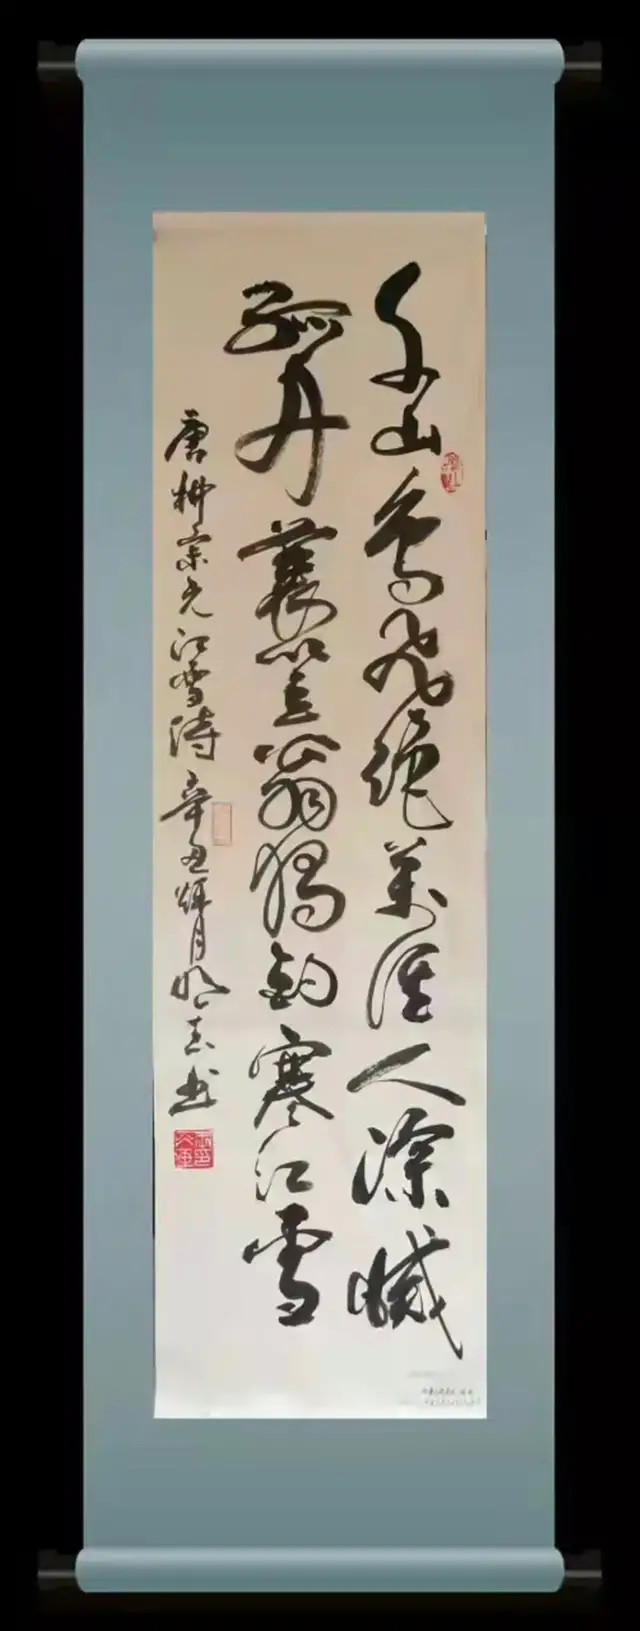 千山鳥飛絕萬徑人踪滅
孤舟蓑笠翁獨釣寒江雪
唐柳宗元江雪詩 辛丑 月 书